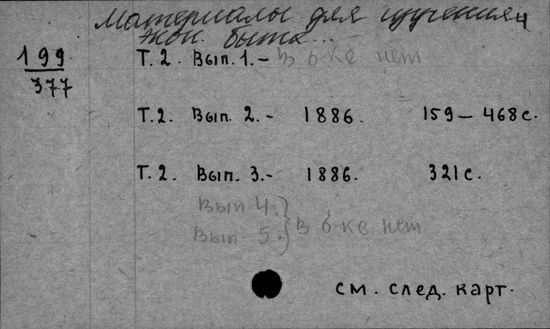 Материалы для изучения 4
экон. быта...
199
377
Т. 2. Вып. 1. – В б-ке нет
Т. 2. Вып. 2. – 1886. 159 – 468 с.
Т. 2. Вып. 3. – 1886. 321 с.
Вып 4. } В б-ке нет
Вып 5.
см. след. карт.